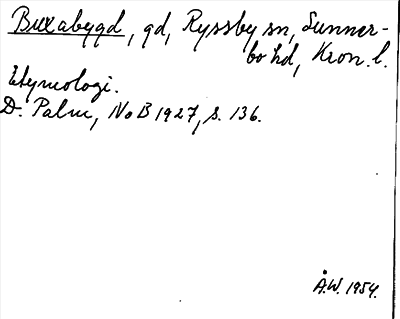 Buxabygd, gd, Ryssby sn, Sunner-
bo hd, Kron. l.
Etymologi.
D. Palm, NoB 1927, s. 136.
Å.W. 1954.